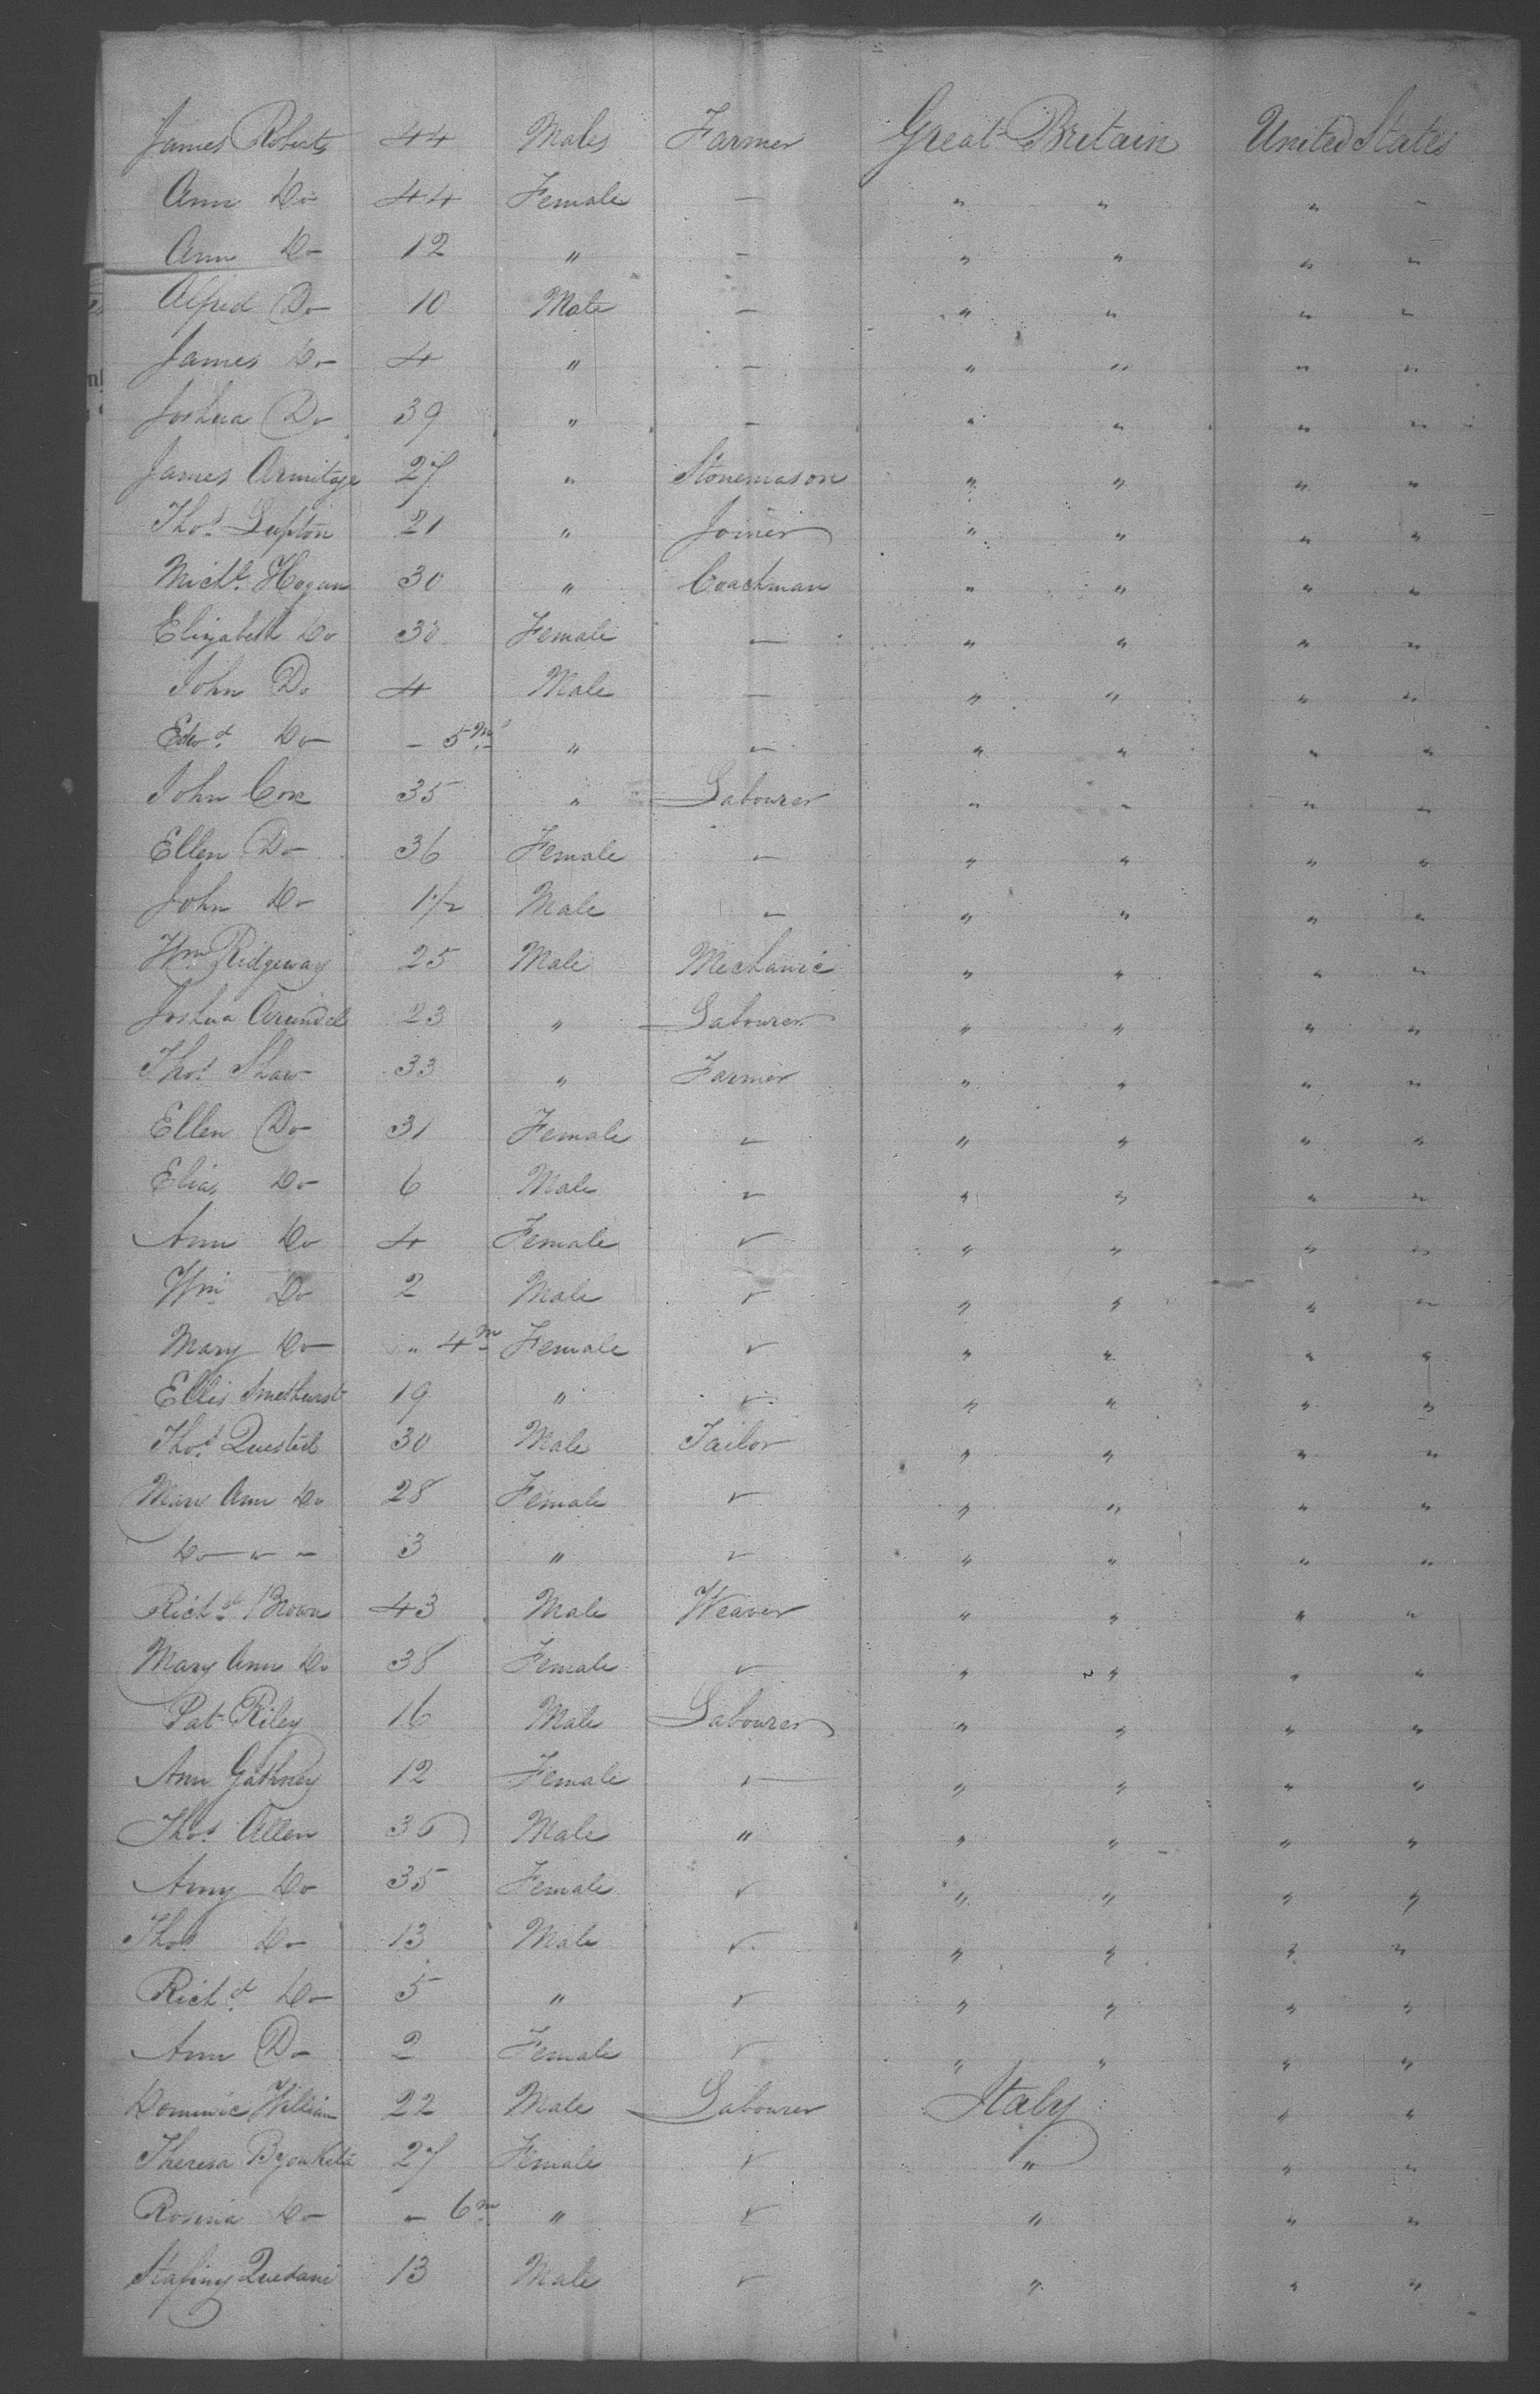 James Roberts 44 Males Farmer Great Britain United States
Ann Do 44 Female — " " " "
Ann Do 12 " — " " " "
Alfred Do 10 Male — " " " "
James Do 4 " — " " " "
Joshua Do 39 " — " " " "
James Armitage 27 " Stonemason " " " "
Thos. Lupton 21 " Joiner " " " "
Michl. Hogan 30 " Coachman " " " "
Elizabeth Do 30 Female — " " " "
John Do 4 Male — " " " "
Edwd. Do — 5m " — " " " "
John Cox 35 " Labourer " " " "
Ellen Do 36 Female — " " " "
John Do 1 1/2 Male — " " " "
Wm. Ridgeway 25 Male Mechanic " " " "
Joshua Arundel 23 " Labourer " " " "
Thos. Shaw 33 " Farmer " " " "
Ellen Do 31 Female — " " " "
Elias Do 6 Male — " " " "
Ann Do 4 Female " " " " "
Wm. Do 2 Male " " " " "
Mary Do " 4m Female " " " " "
Ellis Smethurst 19 " " " " " "
Thos. Quested 30 Male Tailor " " " "
Mary Ann Do 28 Female " " " " "
Do " — 3 " " " " " "
Richd. Brown 43 Male Weaver " " " "
Mary Ann Do 38 Female " " " " "
Pat Riley 16 Male Labourer " " " "
Ann Gathney 12 Female — " " " "
Thos. Allen 36 Male " " " " "
Amy Do 35 Female " " " " "
Thos. Do 13 Male " " " " "
Richd. Do 5 " " " " " "
Ann Do 2 Female " " " " "
Dominic William 22 Male Labourer Italy " "
Theresa 27 Female " " " "
Rosina Do — 6m " " " " "
13 Male " " " "